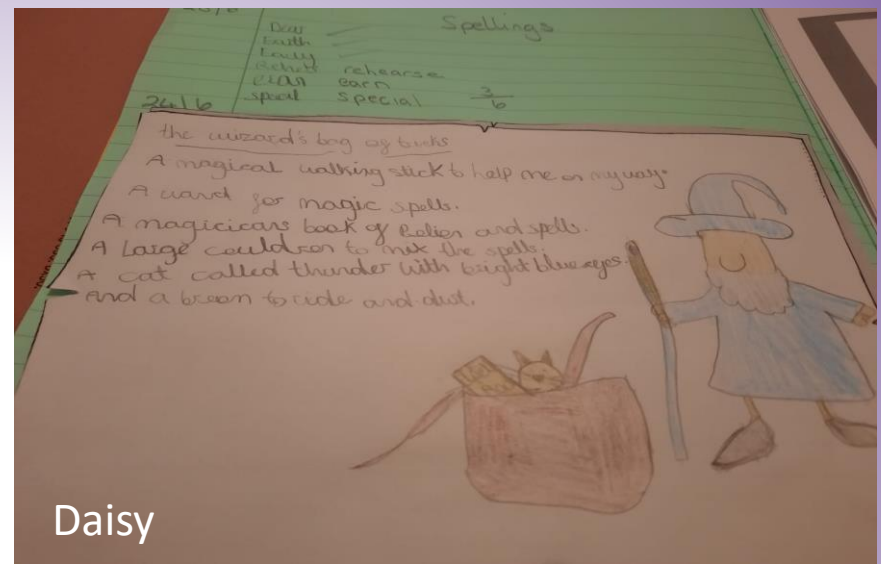 Spellings
Dear
Earth
Early
rehearse
earn
special
3/6
24/6
the wizard's bag of tricks
A magical walking stick to help me on my way.
A wand for magic spells.
A magicicans book of and spells.
A Large couldron to mix the spells.
A cat called thunder with bright blue eyes.
And a broom to ride and dust.
Daisy